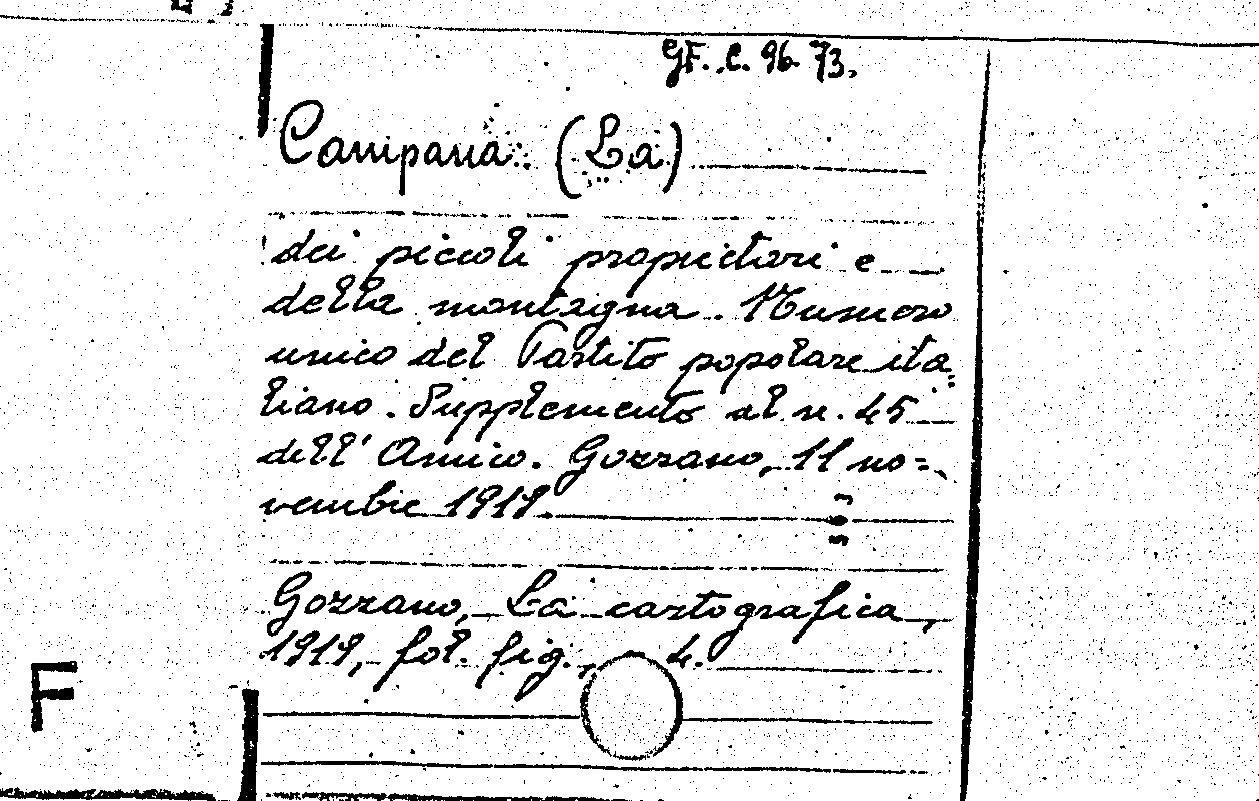 GF. C. 96. 73.
Campana (La)
dei piccoli proprietari e
della montagna. Numero
unico del Partito popolare ita=
liano. Supplemento al n. 45
dell' Amico. Gozzano, 11 no=
vembre 1919.
Gozzano, La cartografica,
1919, fol. fig., 4.
F